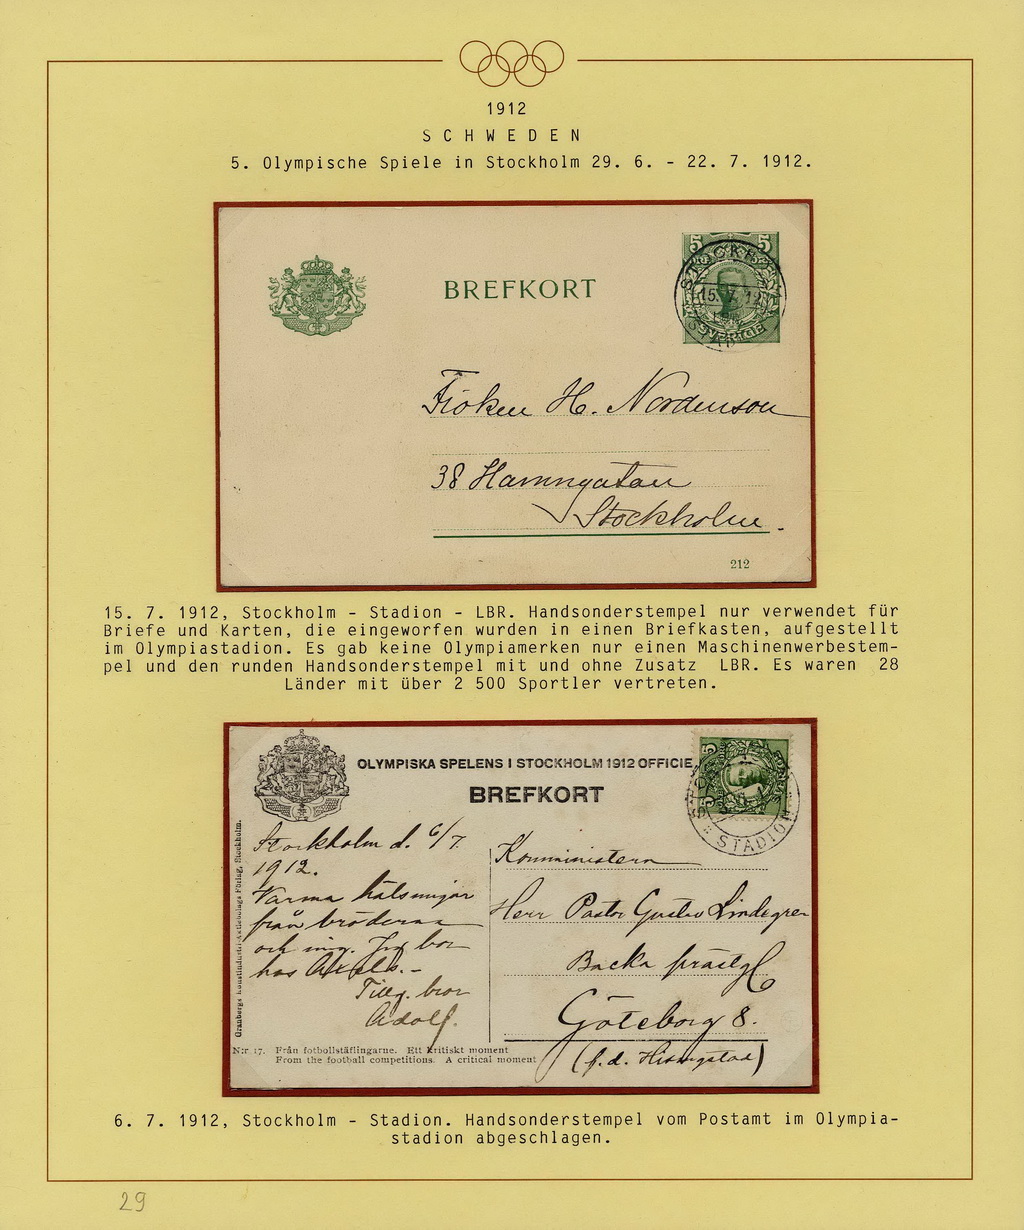 1912
SCHWEDEN
5. Olympische Spiele in Stockholm 29. 6. - 22. 7. 1912.
5 5
BREFKORT
STOCKH
15. 7. 12
LBR
SVERIGE
STAD
Fröken H. Nordenson
38 Hamngatan
Stockholm.
212
15. 7. 1912, Stockholm - Stadion - LBR. Handsonderstempel nur verwendet für
Briefe und Karten, die eingeworfen wurden in einen Briefkasten, aufgestellt
im Olympiastadion. Es gab keine Olympiamerken nur einen Maschinenwerbestem-
pel und den runden Handsonderstempel mit und ohne Zusatz LBR. Es waren 28
Länder mit über 2 500 Sportler vertreten.
OLYMPISKA SPELENS I STOCKHOLM 1912 OFFICIE
BREFKORT
5
STADION
Stockholm d. 6/7
1912.
Varma hälsningar
från bröderna
och mig. Jag bor
hos Axels. -
Tillg. bror
Adolf.
Komministern
Herr Pastor Gustav Lindegren
Backa prästg.
Göteborg 8.
(f.d. Hisingstad)
Granbergs Konstindustri-Aktiebolags Förlag, Stockholm.
N:r 17. Från fotbollstäflingarne. Ett kritiskt moment
From the football competitions. A critical moment
6. 7. 1912, Stockholm - Stadion. Handsonderstempel vom Postamt im Olympia-
stadion abgeschlagen.
29